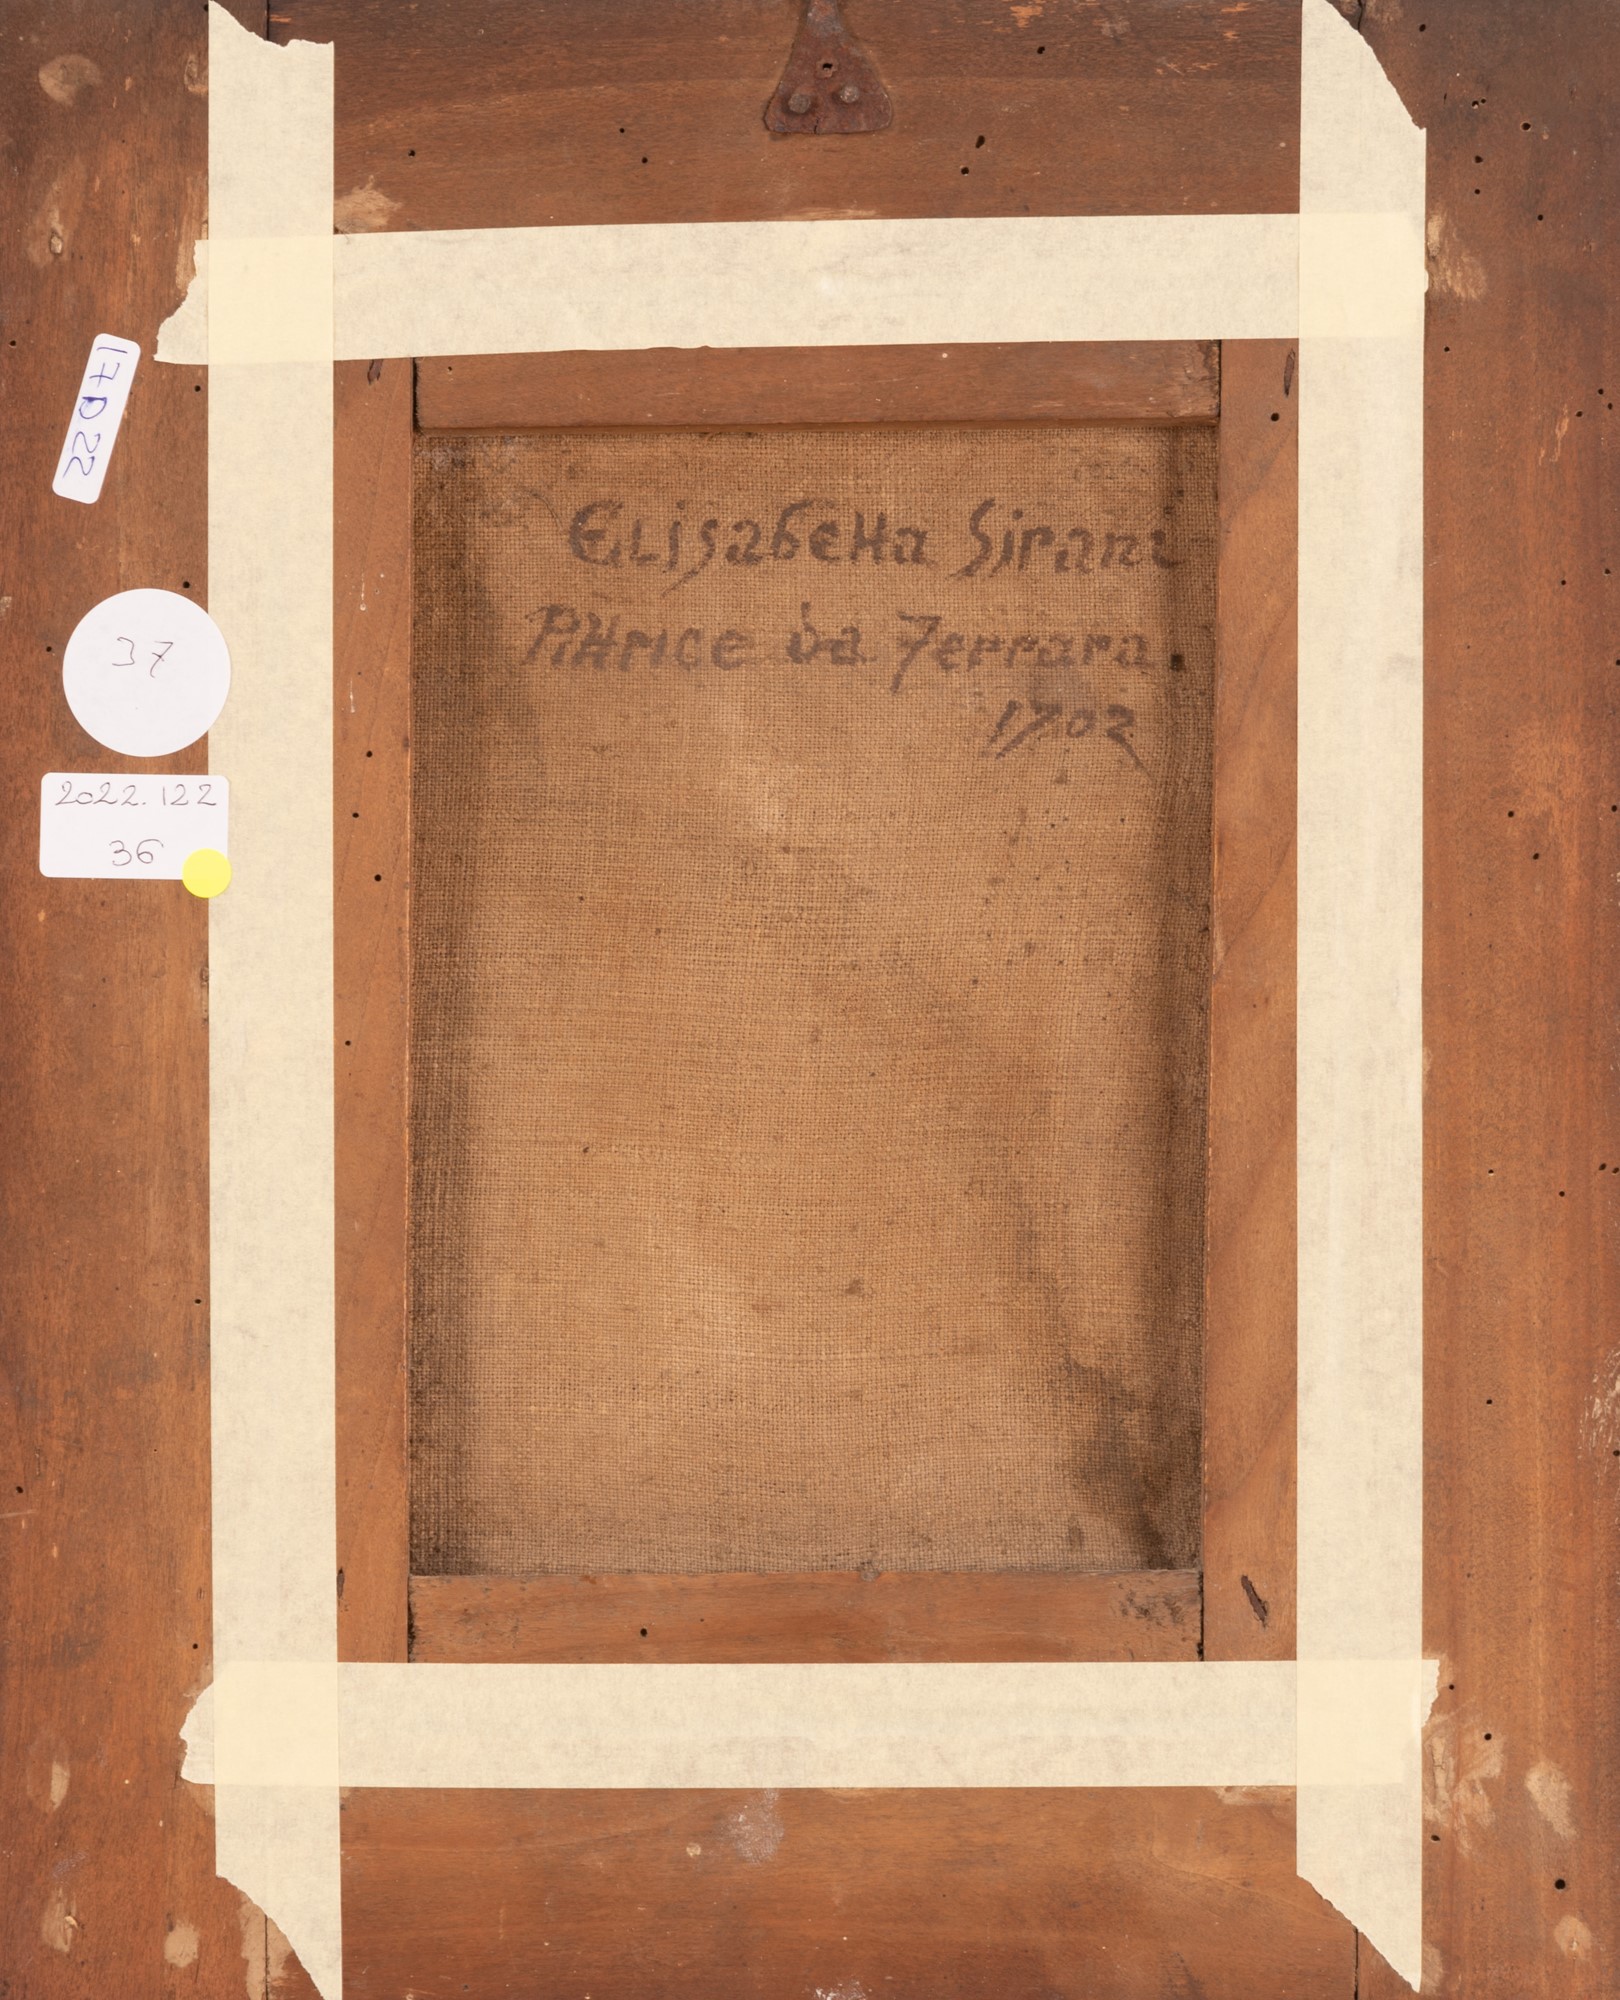 Elisabetta Sirani
Pittrice da Ferrara.
1702
17D22
37
2022.122
36